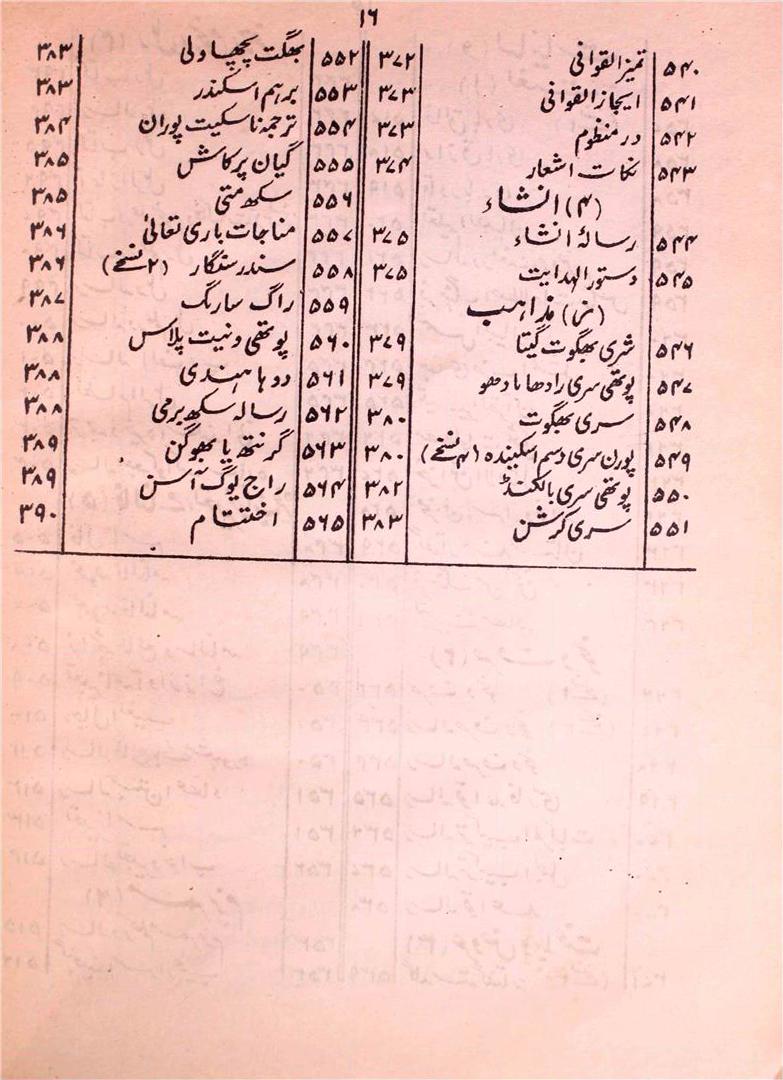 ۱۶
۵۴۰ تمیز القوافی ۳۷۲
۵۴۱ ایجاز القوافی ۳۷۳
۵۴۲ در منظوم ۳۷۳
۵۴۳ نکات اشعار ۳۷۴
(۴) انشاء
۵۴۴ رسالۂ انشاء ۳۷۵
۵۴۵ دستور الہدایت ۳۷۵
مذاہب
۵۴۶ شری بھگوت گیتا ۳۷۹
۵۴۷ پوتھی سری رادھا مادھو ۳۷۹
۵۴۸ سری بھگوت ۳۸۰
۵۴۹ پورن سری دسم اسکیندہ (۴ نسخے) ۳۸۰
۵۵۰ پوتھی سری بالکنڈ ۳۸۲
۵۵۱ سری کرشن ۳۸۳
۵۵۲ بھگت پچھاولی ۳۸۳
۵۵۳ برہم اسکندر ۳۸۳
۵۵۴ ترجمہ ناسکیت پوران ۳۸۴
۵۵۵ گیان پرکاش ۳۸۵
۵۵۶ سکھ متی ۳۸۵
۵۵۷ مناجات باری تعالیٰ ۳۸۶
۵۵۸ سندر سنگار (۲ نسخے) ۳۸۶
۵۵۹ راگ سارنگ ۳۸۷
۵۶۰ پوتھی ونیت پلاس ۳۸۸
۵۶۱ دوہا ہندی ۳۸۸
۵۶۲ رسالہ سکھ برمی ۳۸۸
۵۶۳ گرنتھ یا بھوگن ۳۸۹
۵۶۴ راج یوگ آسن ۳۸۹
۵۶۵ اختتام ۳۹۰